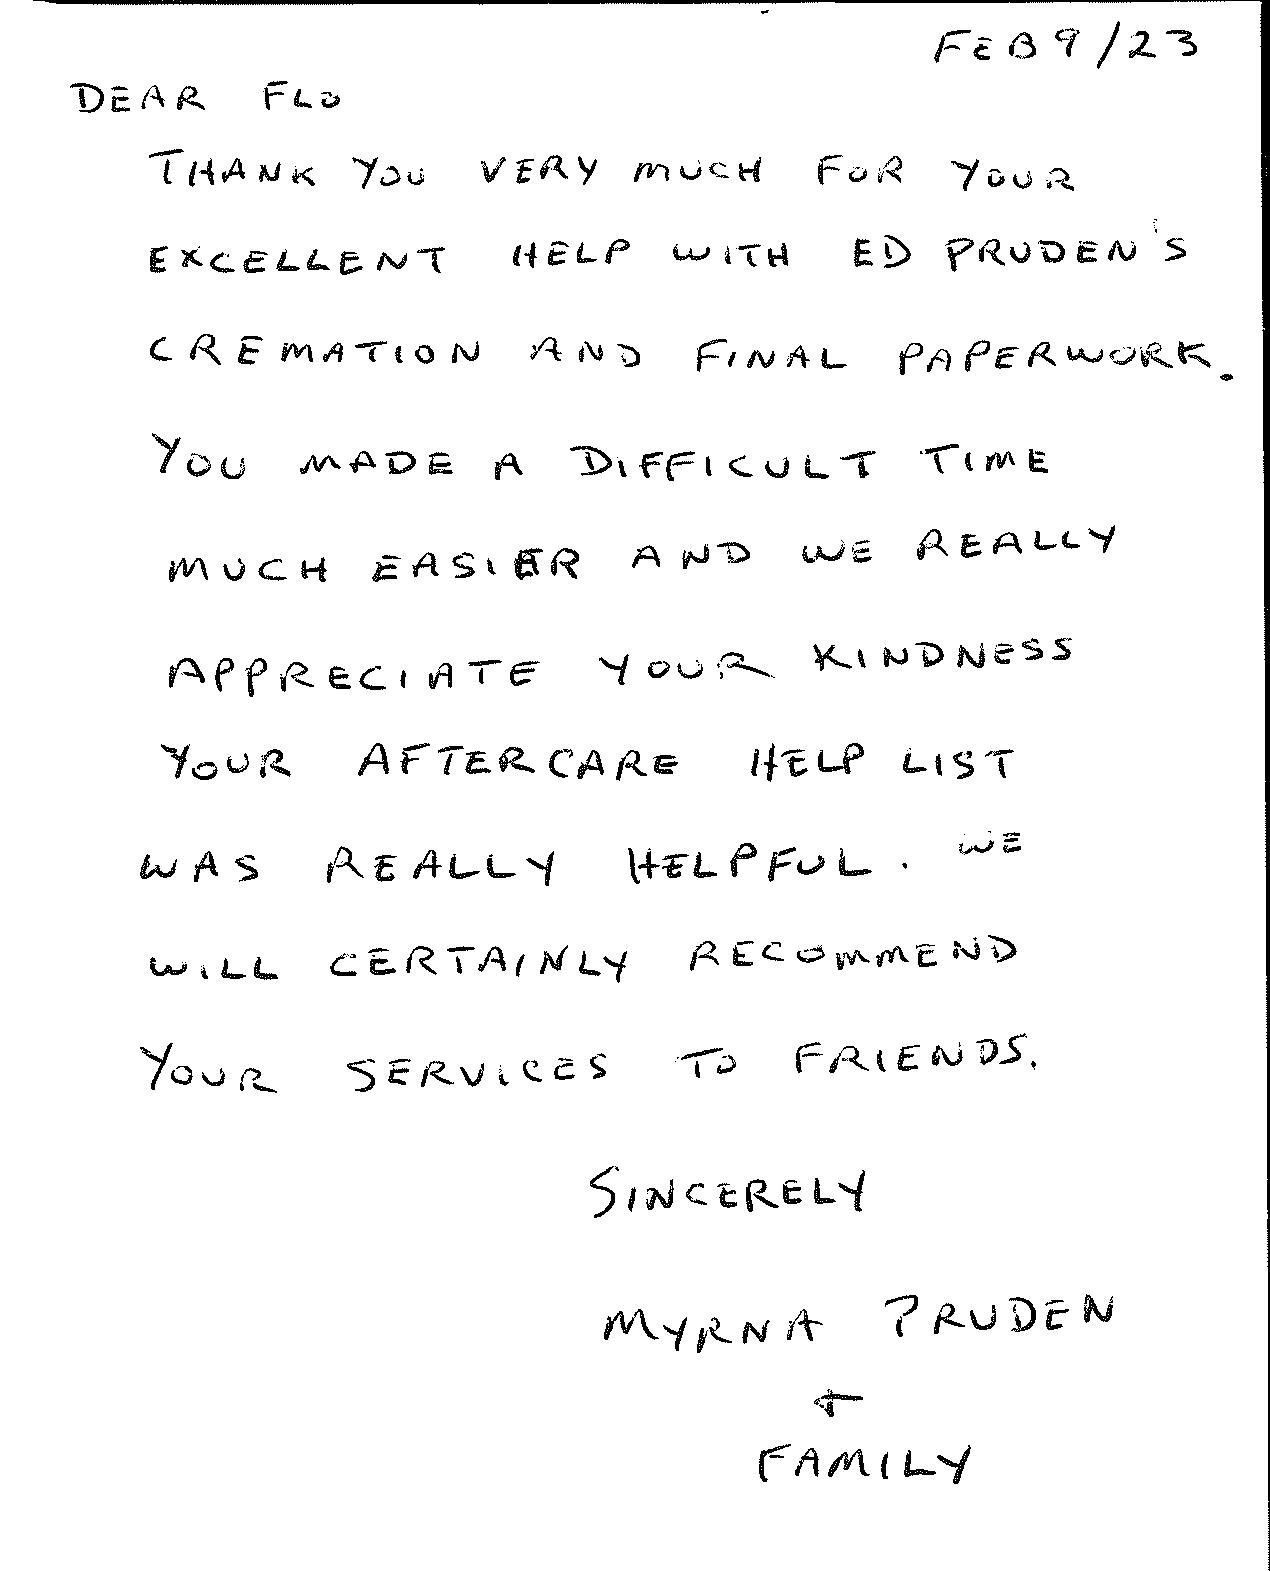 FEB 9/23
DEAR FLO
THANK YOU VERY MUCH FOR YOUR
EXCELLENT HELP WITH ED PRUDEN'S
CREMATION AND FINAL PAPERWORK.
YOU MADE A DIFFICULT TIME
MUCH EASIER AND WE REALLY
APPRECIATE YOUR KINDNESS
YOUR AFTERCARE HELP LIST
WAS REALLY HELPFUL. WE
WILL CERTAINLY RECOMMEND
YOUR SERVICES TO FRIENDS.
SINCERELY
MYRNA PRUDEN
+
FAMILY